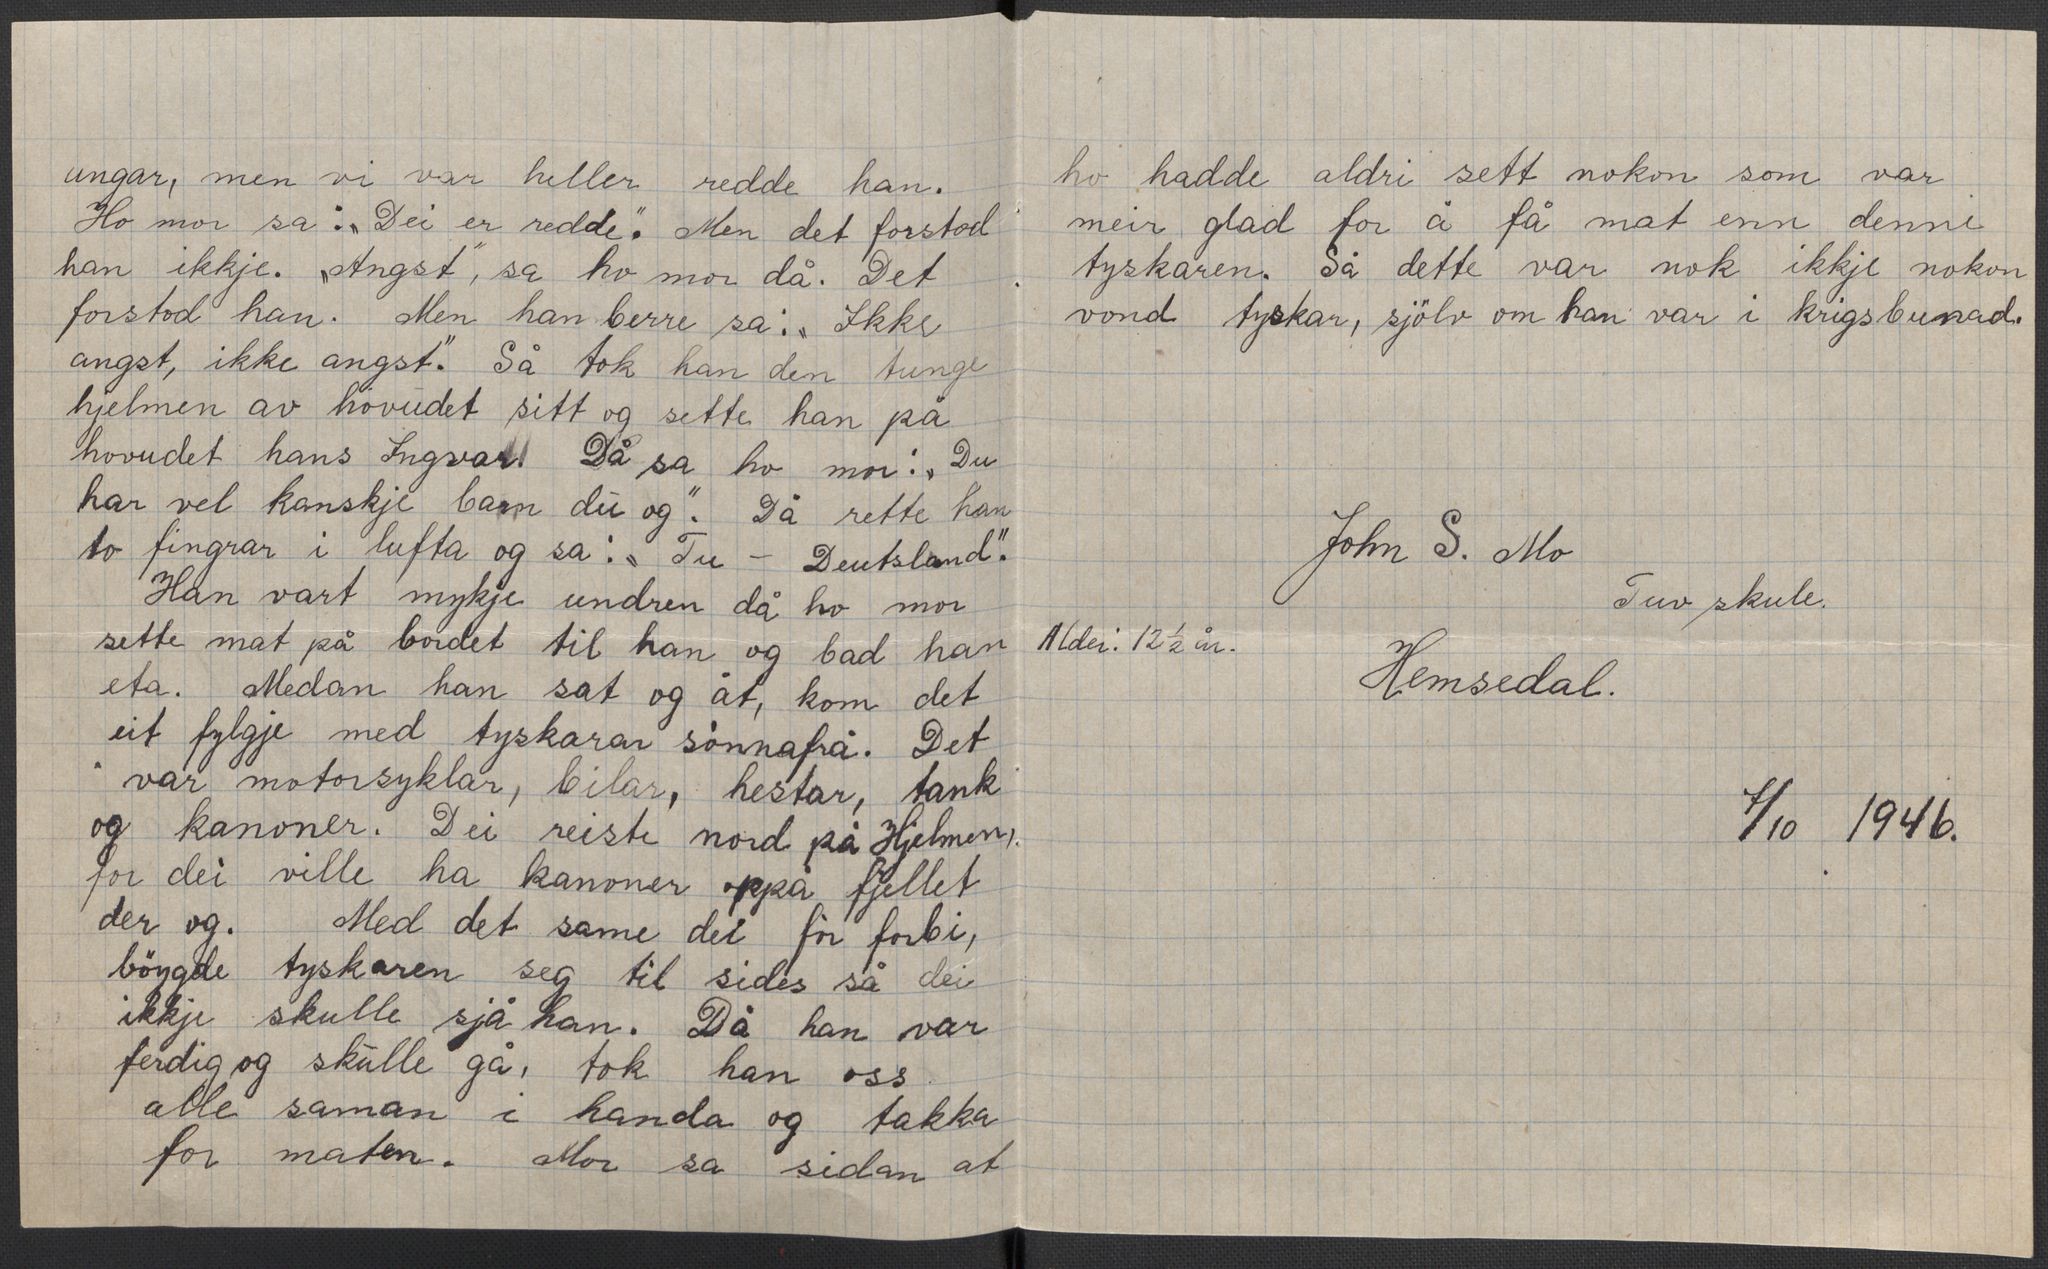 ungar, men vi var heller redde han.
Ho mor sa: „Dei er redde". Men det forstod
han ikkje. „Angst", sa ho mor då. Det
forstod han. Men han berre sa: „Ikke
angst, ikke angst". Så tok han den tunge
hjelmen av hovudet sitt og sette han på
hovudet hans Ingvar. Då sa ho mor: „Du
har vel kanskje barn du og". Då rette han
to fingrar i lufta og sa: „Tu – Deutsland".
Han vart mykje undren då ho mor
sette mat på bordet til han og bad han
eta. Medan han sat og åt, kom det
eit fylgje med tyskarar sønnafrå. Det
var motorsyklar, bilar, hestar, tank
og kanoner. Dei reiste nord på Hjelmen,
for dei ville ha kanoner oppå fjellet
der og. Med det same dei fór forbi,
böygde tyskaren seg til sides så dei
ikkje skulle sjå han. Då han var
ferdig og skulle gå, tok han oss
alle saman i handa og takka
for maten. Mor sa sidan at
ho hadde aldri sett nokon som var
meir glad for å få mat enn denne
tyskaren. Så dette var nok ikkje nokon
vond tyskar, sjölv om han var i krigsbunad.
John S. Mo
Tuv skule.
Alder: 12 ½ år.
Hemsedal.
/10 1946.